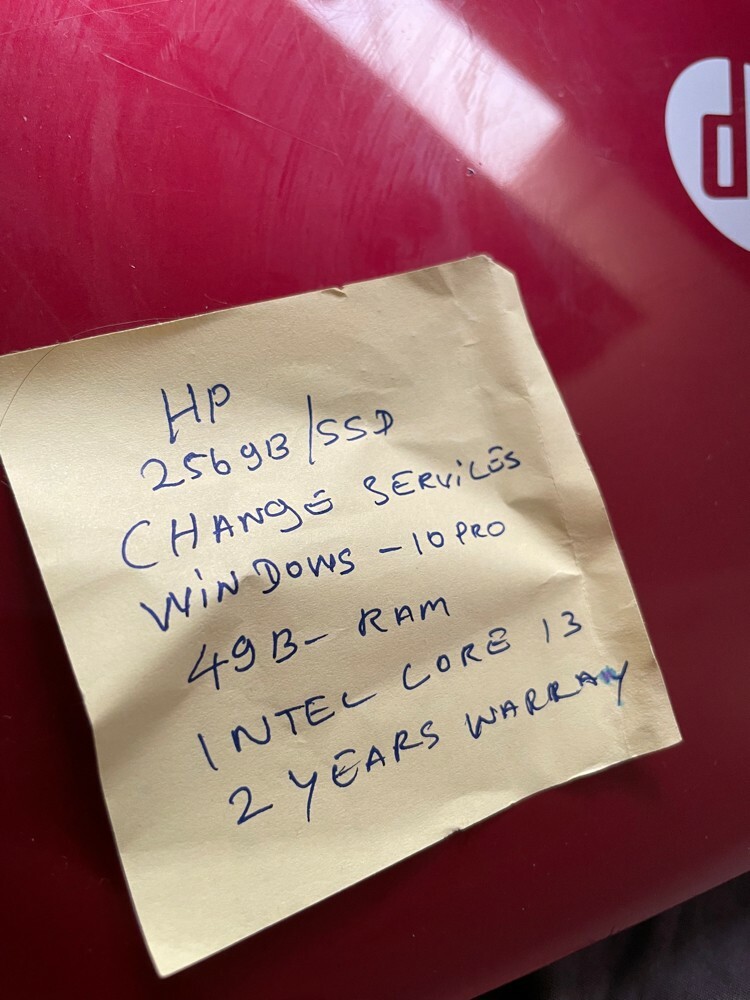 HP
256gB/SSD
CHANgE SERViCES
WiNDOWS - 10 PRO
4gB - RAM
INTEL CORE I3
2 YEARS WARRAY
hp